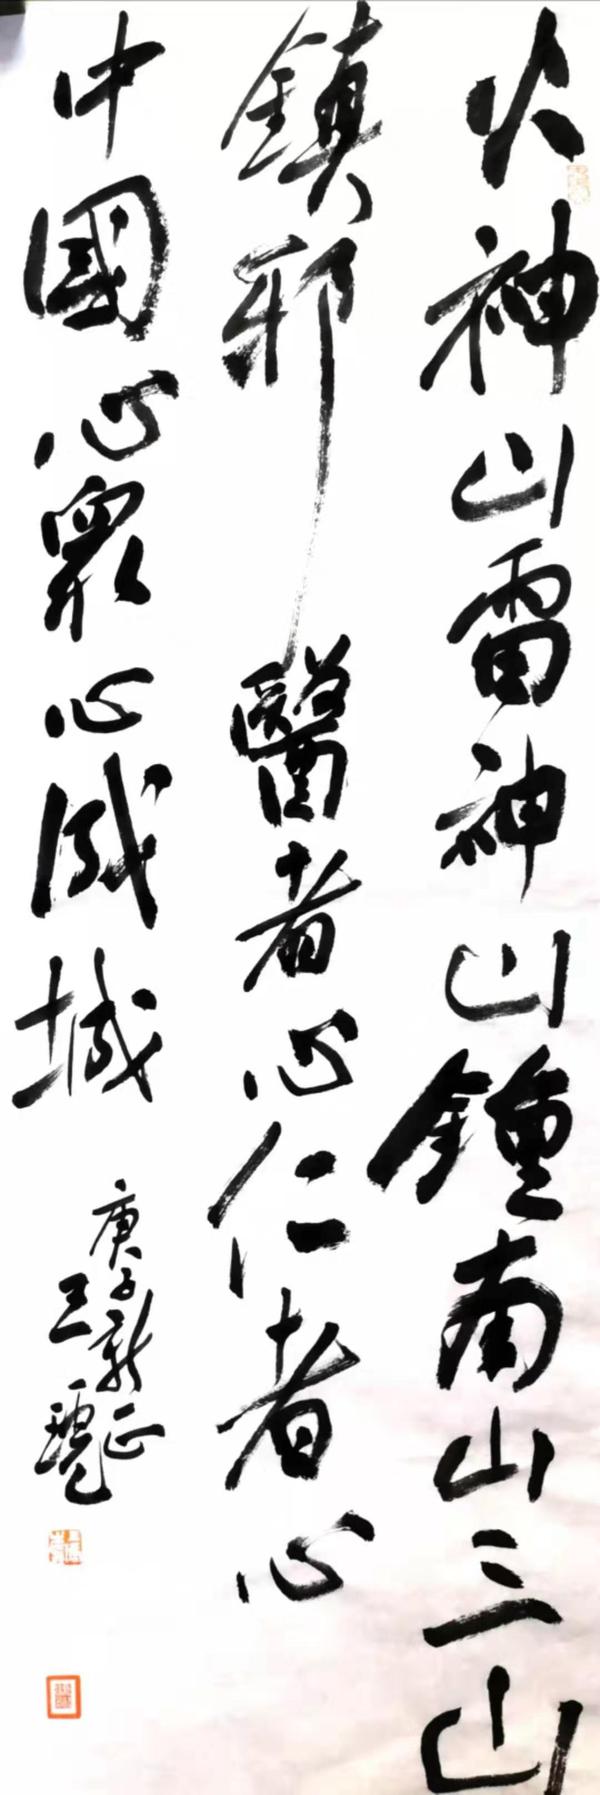 火神山雷神山鍾南山三山
鎮邪醫者心仁者心
中國心眾心成城
庚子新正
王